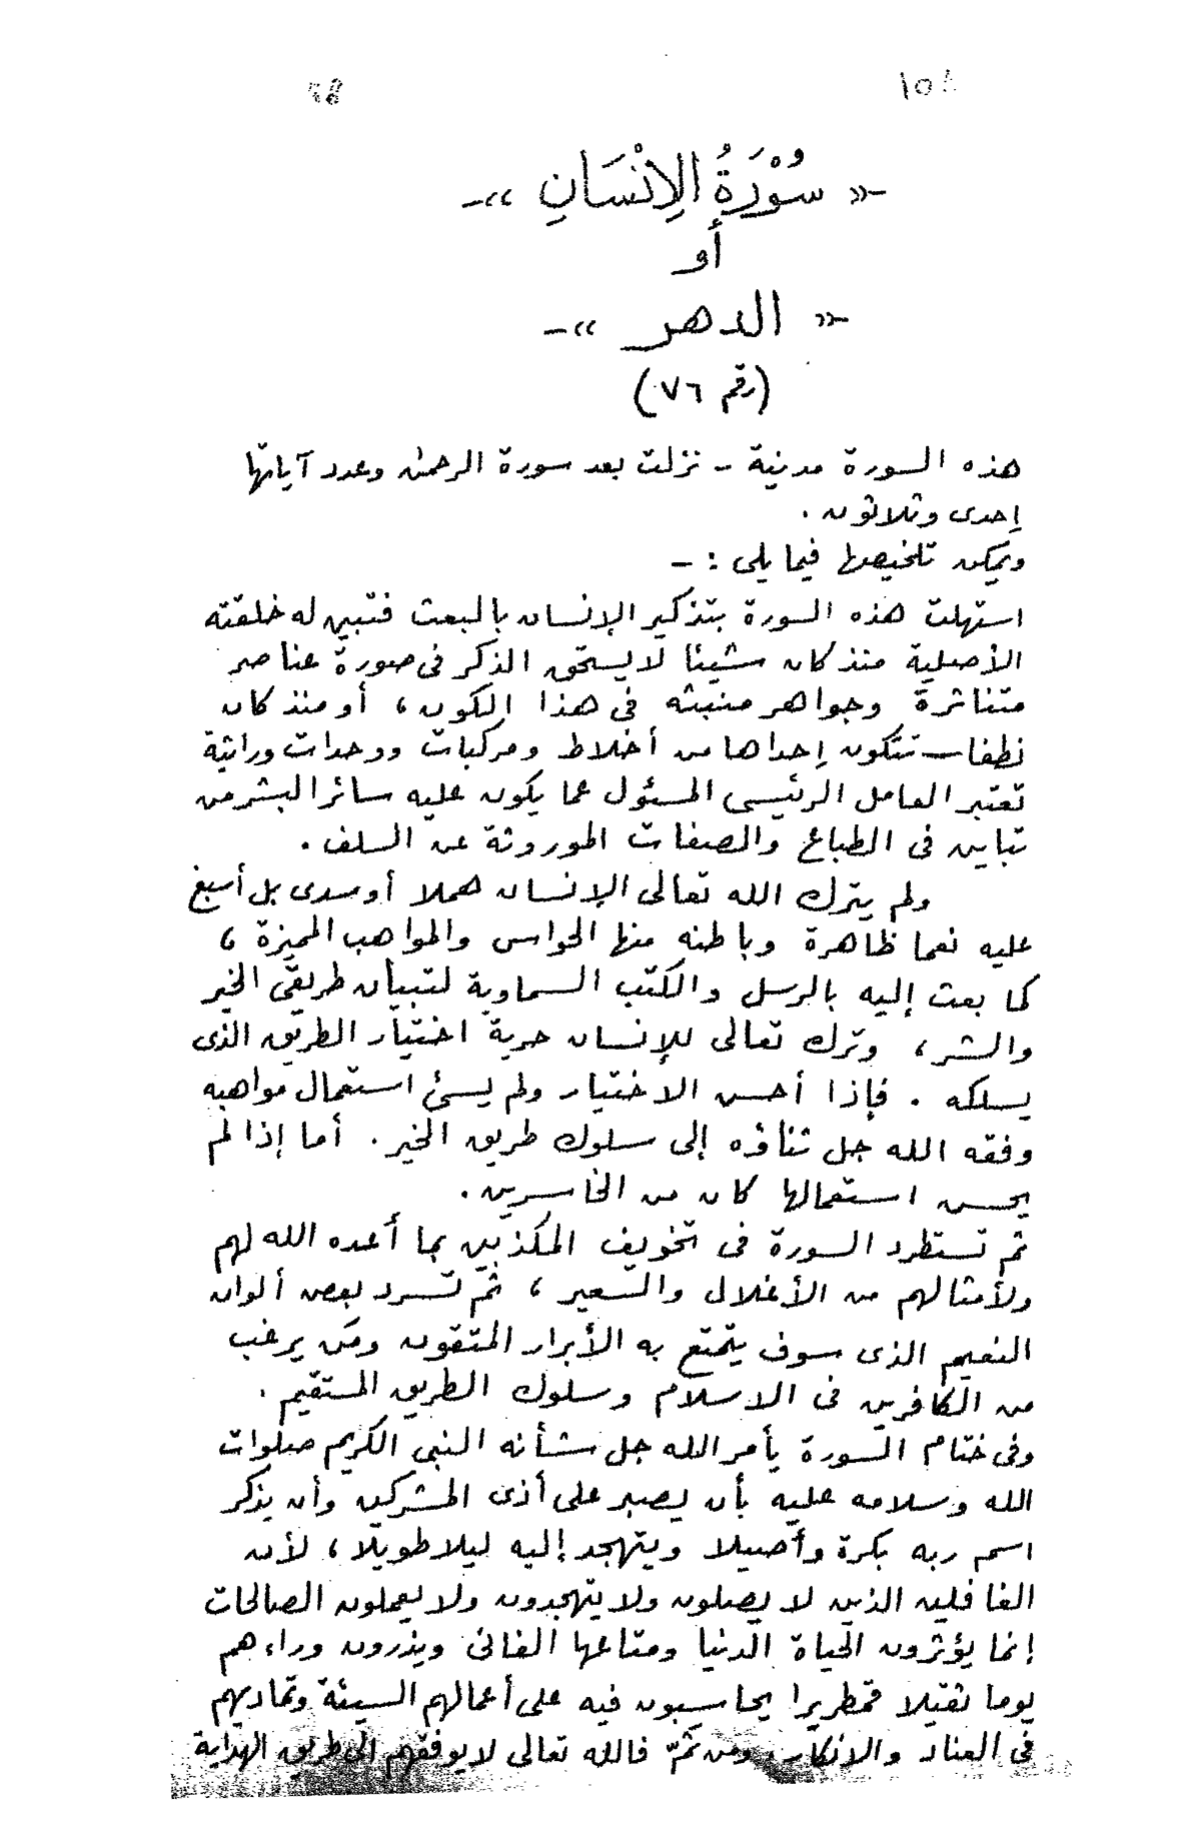 -« سُوْرَةُ الِإنْسَانِ »-
أو
-« الدهر »-
(رقم ٧٦)
هذه السورة مدنية - نزلت بعد سورة الرحمن وعدد آياتها
إحدى وثلاثون .
ويمكن تلخيصها فيما يلى : -
استهلت هذه السورة بتذكير الإنسان بالبعث فتبين له خلقته
الأصلية منذ كان شيئا لا يستحق الذكر فى صورة عناصر
متناثرة وجواهر منبثه فى هذا الكون ، أو منذ كان
نطفات تتكون إحداها من أخلاط ومركبات ووحدات وراثية
تعتبر العامل الرئيسى المسئول عما يكون عليه سائر البشر من
تباين فى الطباع والصفات الموروثة عن السلف .
ولم يترك الله تعالى الإنسان هملا أو سدى بل أسبغ
عليه نعما ظاهرة وباطنه منها الحواس والمواهب المميزة ،
كما بعث إليه بالرسل والكتب السماوية لتبيان طريقى الخير
والشر ، وترك تعالى للإنسان حرية اختيار الطريق الذى
يسلكه . فإذا أحسن الاختيار ولم يسئ استعمال مواهبه
وفقه الله جل ثناؤه إلى سلوك طريق الخير . أما إذا لم
يحسن استعمالها كان من الخاسرين .
ثم تستطرد السورة فى تخويف المكذبين بما أعده الله لهم
ولأمثالهم من الأغلال والسعير ، ثم تسرد بعض ألوان
النعيم الذى سوف يتمتع به الأبرار المتقون ومن يرغب
من الكافرين فى الاسلام وسلوك الطريق المستقيم .
وفى ختام السورة يأمر الله جل شأنه النبى الكريم صلوات
الله وسلامه عليه بأن يصبر على أذى المشركين وأن يذكر
اسم ربه بكرة وأصيلا ويتهجد إليه ليلا طويلا ، لأن
الغافلين الذين لا يصلون ولا يتهجدون ولا يعملون الصالحات
إنما يؤثرون الحياة الدنيا ومتاعها الفانى ويذرون وراءهم
يوما ثقيلا قمطريرا يحاسبون فيه على أعمالهم السيئة وتماديهم
فى العناد والانكار ومن ثَمّ فالله تعالى لا يوفقهم الى طريق الهداية